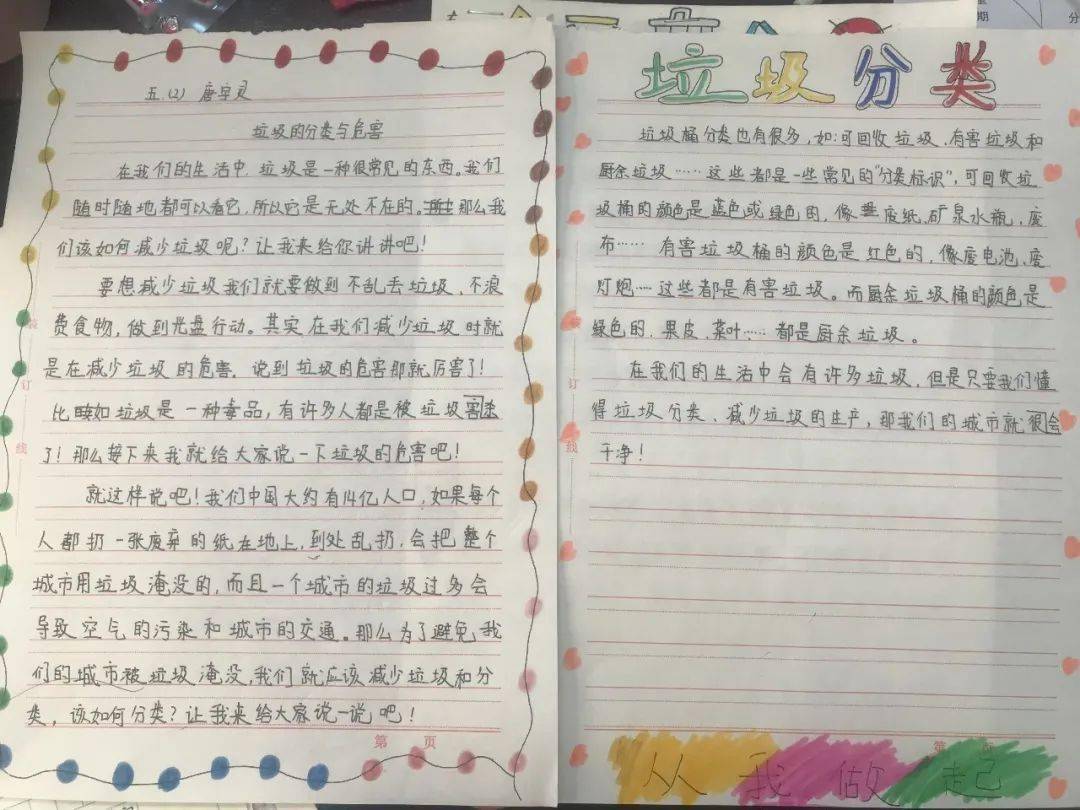 五.(2) 唐宇灵
垃圾的分类与危害
在我们的生活中,垃圾是一种很常见的东西。我们
随时随地都可以看它,所以它是无处不在的。那么我
们该如何减少垃圾呢?让我来给你讲讲吧!
要想减少垃圾我们就要做到不乱丢垃圾、不浪
费食物,做到光盘行动。其实在我们减少垃圾时就
是在减少垃圾的危害,说到垃圾的危害那就厉害了!
比如垃圾是一种毒品,有许多人都是被垃圾害
了!那么接下来我就给大家说一下垃圾的危害吧!
就这样说吧!我们中国大约有14亿人口,如果每个
人都扔一张废弃的纸在地上,到处乱扔,会把整个
城市用垃圾淹没的,而且一个城市的垃圾过多会
导致空气的污染和城市的交通。那么为了避免我
们的城市被垃圾淹没,我们就应该减少垃圾和分
类,该如何分类?让我来给大家说一说吧!
第 页
装
订
线
垃圾分类
垃圾桶分类也有很多,如:可回收垃圾、有害垃圾和
厨余垃圾……这些都是一些常见的“分类标识”,可回收垃
圾桶的颜色是蓝色或绿色的,像废纸、矿泉水瓶、废
布…… 有害垃圾桶的颜色是红色的,像废电池、废
灯炮……这些都是有害垃圾。而厨余垃圾桶的颜色是
绿色的,果皮、菜叶……都是厨余垃圾。
在我们的生活中会有许多垃圾,但是只要我们懂
得垃圾分类、减少垃圾的生产,那我们的城市就很会
干净!
装
订
线
第 页
从我做起
期
分